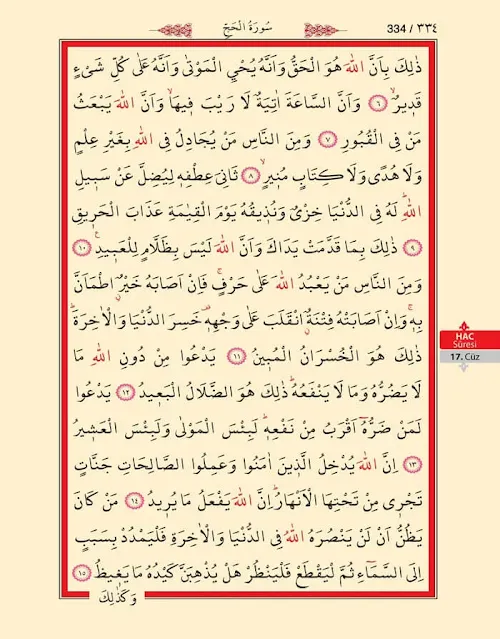 سُورَةُ الْحَجِّ
334 / ٣٣٤
ذٰلِكَ بِاَنَّ اللّٰهَ هُوَ الْحَقُّ وَاَنَّهُ يُحْيِ الْمَوْتٰى وَاَنَّهُ عَلٰى كُلِّ شَىْءٍ
قَد۪يرٌۙ ﴿٦﴾ وَاَنَّ السَّاعَةَ اٰتِيَةٌ لَا رَيْبَ ف۪يهَاۙ وَاَنَّ اللّٰهَ يَبْعَثُ
مَنْ فِى الْقُبُورِ ﴿٧﴾ وَمِنَ النَّاسِ مَنْ يُجَادِلُ فِى اللّٰهِ بِغَيْرِ عِلْمٍ
وَلَا هُدًى وَلَا كِتَابٍ مُن۪يرٍۙ ﴿٨﴾ ثَانِىَ عِطْفِه۪ لِيُضِلَّ عَنْ سَب۪يلِ
اللّٰهِۜ لَهُ فِى الدُّنْيَا خِزْىٌ وَنُذ۪يقُهُ يَوْمَ الْقِيٰمَةِ عَذَابَ الْحَر۪يقِ
﴿٩﴾ ذٰلِكَ بِمَا قَدَّمَتْ يَدَاكَ وَاَنَّ اللّٰهَ لَيْسَ بِظَلَّامٍ لِلْعَب۪يدِ۟ ﴿١٠﴾
وَمِنَ النَّاسِ مَنْ يَعْبُدُ اللّٰهَ عَلٰى حَرْفٍۚ فَاِنْ اَصَابَهُ خَيْرٌۨ اطْمَاَنَّ
بِه۪ۚ وَاِنْ اَصَابَتْهُ فِتْنَةٌۨ انْقَلَبَ عَلٰى وَجْهِه۪ۚ خَسِرَ الدُّنْيَا وَالْاٰخِرَةَۜ
ذٰلِكَ هُوَ الْخُسْرَانُ الْمُب۪ينُ ﴿١١﴾ يَدْعُوا مِنْ دُونِ اللّٰهِ مَا
لَا يَضُرُّهُ وَمَا لَا يَنْفَعُهُۜ ذٰلِكَ هُوَ الضَّلَالُ الْبَع۪يدُۚ ﴿١٢﴾ يَدْعُوا
لَمَنْ ضَرُّهُٓ اَقْرَبُ مِنْ نَفْعِه۪ۜ لَبِئْسَ الْمَوْلٰى وَلَبِئْسَ الْعَش۪يرُ
﴿١٣﴾ اِنَّ اللّٰهَ يُدْخِلُ الَّذ۪ينَ اٰمَنُوا وَعَمِلُوا الصَّالِحَاتِ جَنَّاتٍ
تَجْر۪ى مِنْ تَحْتِهَا الْاَنْهَارُۜ اِنَّ اللّٰهَ يَفْعَلُ مَا يُر۪يدُ ﴿١٤﴾ مَنْ كَانَ
يَظُنُّ اَنْ لَنْ يَنْصُرَهُ اللّٰهُ فِى الدُّنْيَا وَالْاٰخِرَةِ فَلْيَمْدُدْ بِسَبَبٍ
اِلَى السَّمَٓاءِ ثُمَّ لْيَقْطَعْ فَلْيَنْظُرْ هَلْ يُذْهِبَنَّ كَيْدُهُ مَا يَغ۪يظُ ﴿١٥﴾
وَكَذٰلِكَ
HAC
Sûresi
17. Cüz